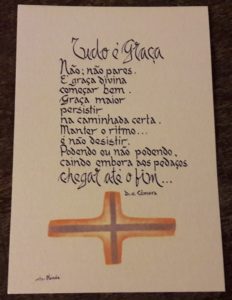 Tudo é Graça
Não; não pares.
É graça divina
começar bem.
Graça maior
persistir
na caminhada certa.
Manter o ritmo...
é não desistir.
Podendo ou não podendo,
caindo embora aos pedaços
chegar até o fim...
D. H. Câmara